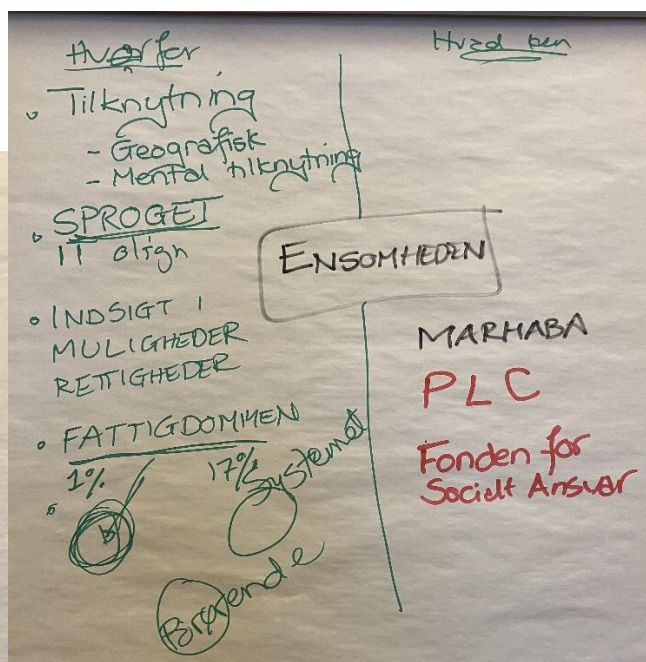 Hvorfor
Tilknytning
- Geografisk
- Mental tilknytning
SPROGET
align
INDSIGT I
MULIGHEDER
RETTIGHEDER
FATTIGDOMMEN
1% 17%
Systemet
Hvad
ENSOMHEDEN
MARHABA
PLC
Fonden for
Socialt Ansvar